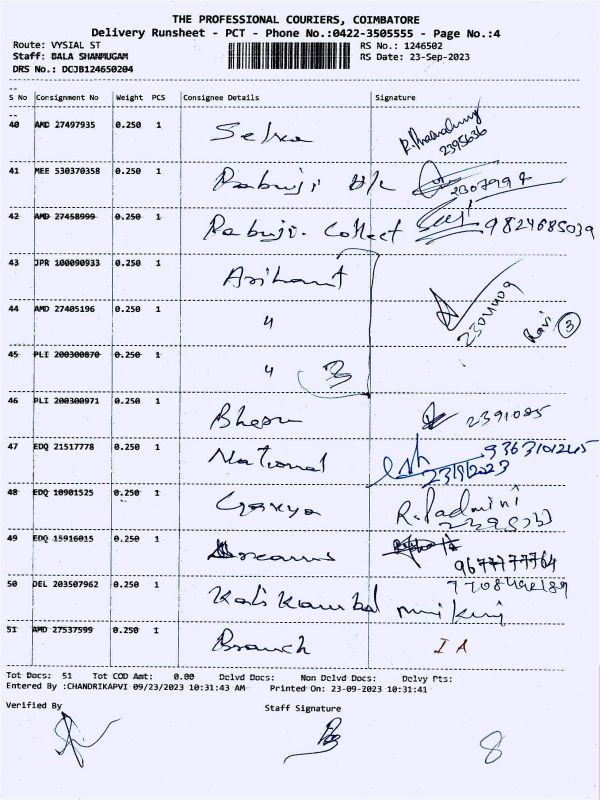 THE PROFESSIONAL COURIERS, COIMBATORE
Delivery Runsheet - PCT - Phone No.:0422-3505555 - Page No.:4
Route: VYSIAL ST RS No.: 1246502
Staff: BALA SHANMUGAM RS Date: 23-Sep-2023
DRS No.: DCJB124650204
S No Consignment No Weight PCS Consignee Details Signature
40 AMD 27497935 0.250 1 Selva 2395636
41 MEE 530370358 0.250 1 Rabuji 2307994
42 AMD 27458999 0.250 1 Rabuji. Collect 9824685039
43 JPR 100090933 0.250 1 Arihant
44 AMD 27405196 0.250 1 Ravi 3
45 PLI 200300870 0.250 1 3
46 PLI 200300971 0.250 1 2391085
47 EDQ 21517778 0.250 1 National 9363101245
23/9/2023
48 EDQ 10901525 0.250 1 R.Padmini
49 EDQ 15916015 0.250 1 Dreams 9677777764
50 DEL 203507962 0.250 1
51 AMD 27537599 0.250 1 Branch I A
Tot Docs: 51 Tot COD Amt: 0.00 Delvd Docs: Non Delvd Docs: Delvy Pts:
Entered By :CHANDRIKAPVI 09/23/2023 10:31:43 AM Printed On: 23-09-2023 10:31:41
Verified By Staff Signature
8